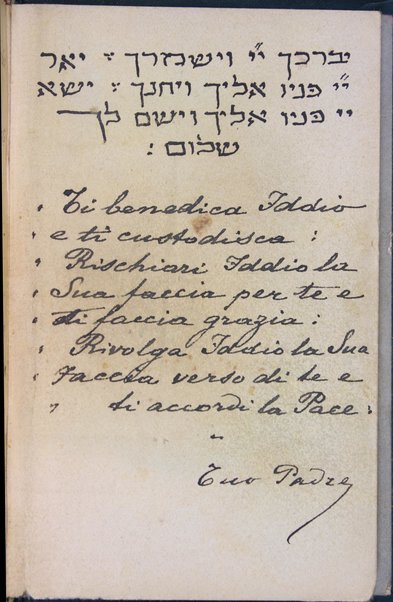 יברכך י״י וישמרך : יאר
י״י פניו אליך ויחנך : ישא
י״י פניו אליך וישם לך
שלום :
" Ti benedica Iddio
" e ti custodisca :
" Rischiari Iddio la
" Sua faccia per te e
" ti faccia grazia :
" Rivolga Iddio la Sua
" Faccia verso di te e
" ti accordi la Pace :
"
Tuo Padre